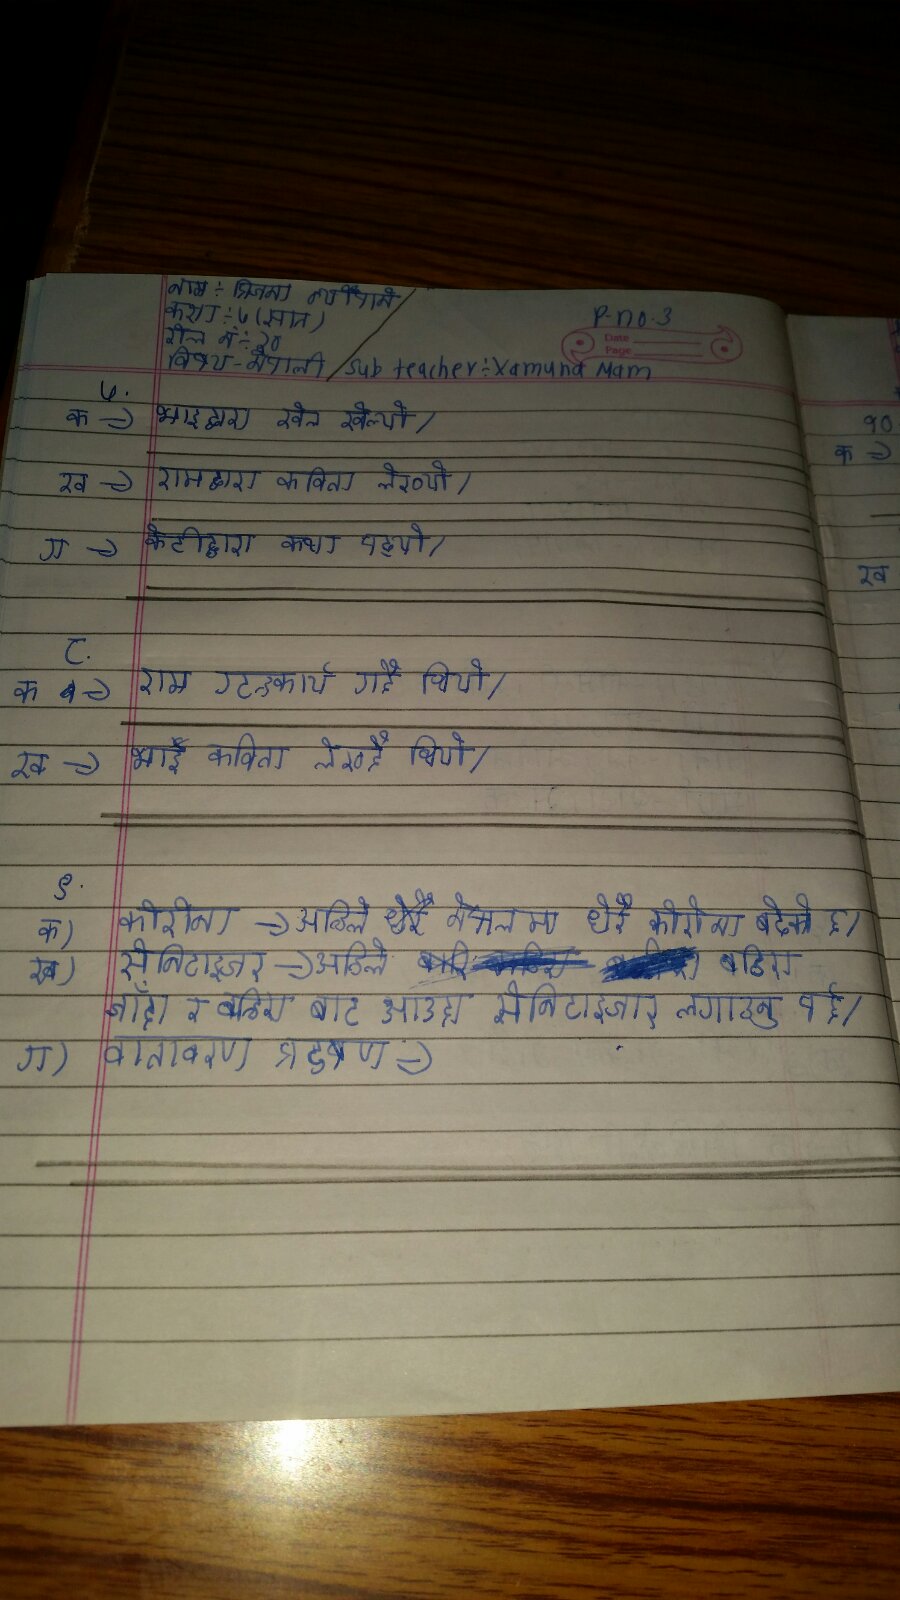 नाम ÷
कथा ÷ ७ (सात)
रोल नं ÷ २०
विषय - नेपाली / Sub teacher ÷ Xamuna Mam
P-no.3
Date
Page
७.
क ⇒ भाइद्वारा खेल खेल्यो/
ख ⇒ रामद्वारा कविता लेख्यो/
ग ⇒ केटीद्वारा कथा पढ्यो/
८.
क ⇒ राम गर्दै थियो/
ख ⇒ भाई कविता लेख्दै थियो/
९.
क) कोरोना ⇒ अहिले धेरै नेपालमा धेरै कोरोना बढेको छ/
ख) सेनिटाइजर ⇒ अहिले बाहिर
जाँदा र बाहिर बाट आउदा सेनिटाइजार लगाउनु पर्छ/
ग) वातावरण प्रदुषण ⇒
१०
क ⇒
ख